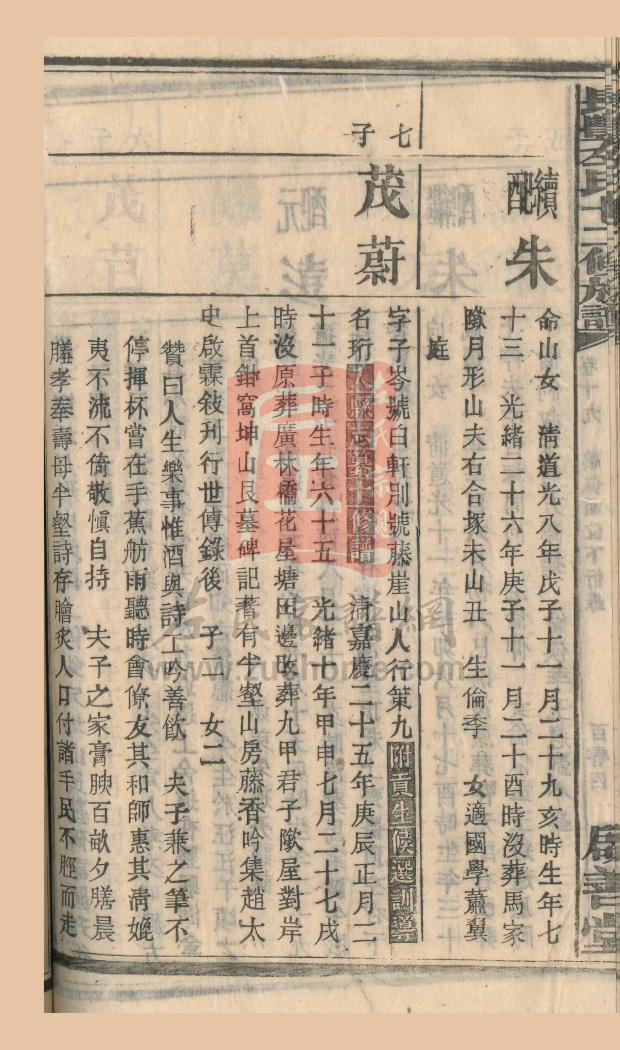 續配 朱
命山女 清道光八年戊子十一月二十九亥時生年七
十三 光緒二十六年庚子十一月二十酉時沒葬馬家
歟月形山夫右合塚未山丑 生倫季 女適國學蕭翼
庭
七子
茂蔚
字子岑號白軒別號藤崖山人行策九附貢生候選訓導
名珩入縣志纂十修譜 清嘉慶二十五年庚辰正月二
十 子時生年六十五 光緒十年甲申七月二十七戌
時沒原葬廣林橋花屋塘田邊改葬九甲君子歟屋對岸
上首鉗窩坤山艮墓碑記蓍有半壑山房藤香吟集趙太
史啟霖敍刊行世傳錄後 子一 女二
贊曰人生樂事惟酒與詩工吟善飲 夫子兼之筆不
停揮杯嘗在手蕉舫雨聽時會僚友其和師惠其淸媲
夷不流不倚敬愼自持 夫子之家膏腴百畝夕膳晨
膳孝奉壽母半壑詩存膾炙人口付諸手民不脛而走
十二修族譜
卷十九
啟善堂
左氏家譜網
www.zushome.com